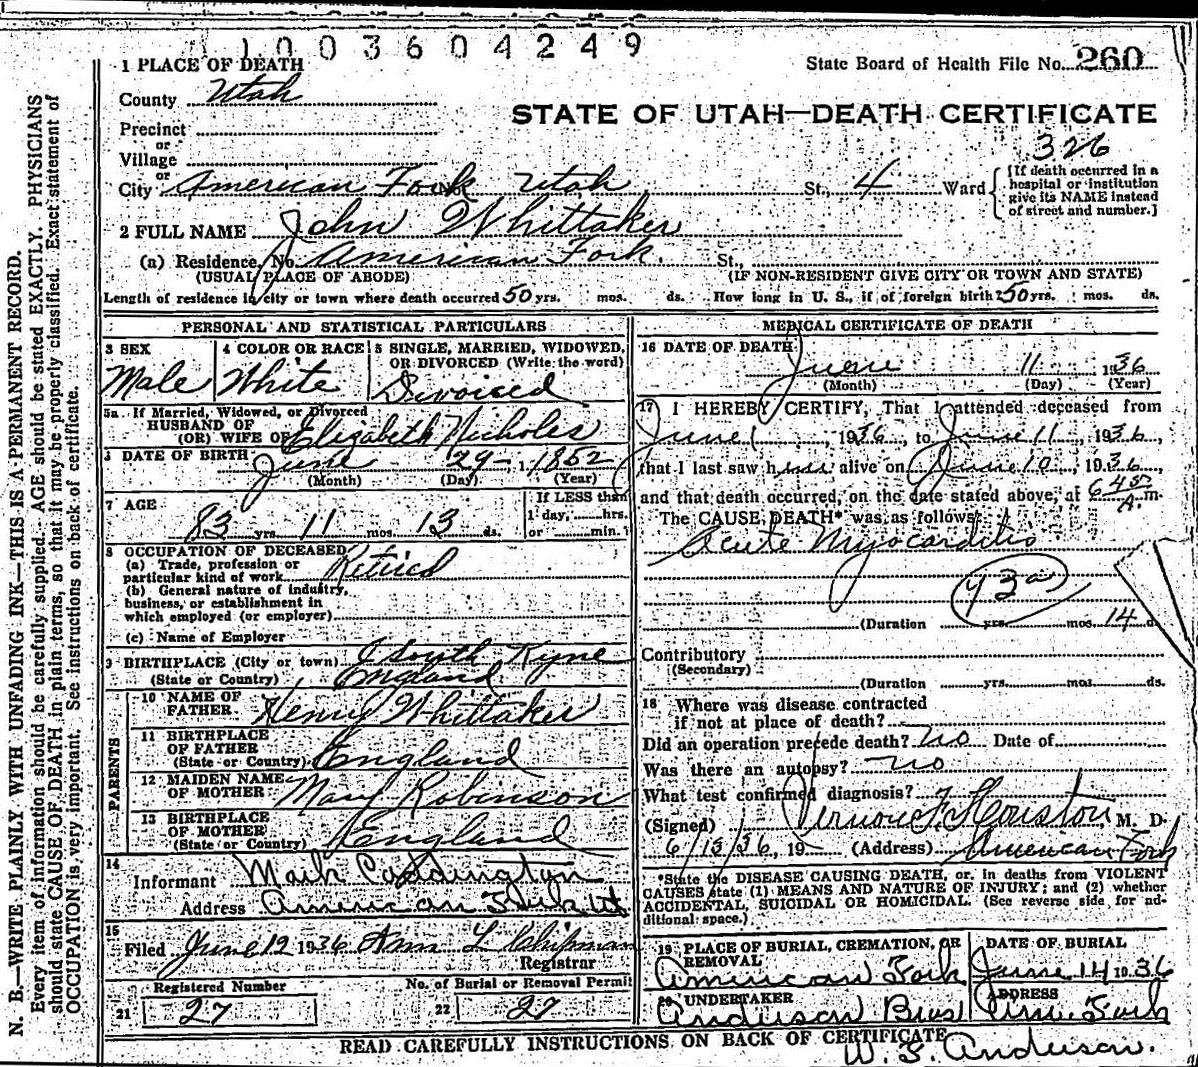 1003604249
1 PLACE OF DEATH
State Board of Health File No. 260
County Utah
STATE OF UTAH—DEATH CERTIFICATE
Precinct
or
Village
326
or
City American Fork Utah St., 4 Ward
[If death occurred in a hospital or institution give its NAME instead of street and number.]
2 FULL NAME John Whittaker
(a) Residence, No. American Fork. St.,
(USUAL PLACE OF ABODE) (IF NON-RESIDENT GIVE CITY OR TOWN AND STATE)
Length of residence in city or town where death occurred 50 yrs. mos. ds. How long in U. S., if of foreign birth? 50 yrs. mos. ds.
PERSONAL AND STATISTICAL PARTICULARS
3 SEX
Male
4 COLOR OR RACE
White
5 SINGLE, MARRIED, WIDOWED, OR DIVORCED (Write the word)
Divorced
5a If Married, Widowed, or Divorced
HUSBAND OF
(OR) WIFE OF Elizabeth Nicholes
6 DATE OF BIRTH June 29, 1852
(Month) (Day) (Year)
7 AGE
83 yrs. 11 mos. 13 ds.
If LESS than
1 day, hrs.
or min.
8 OCCUPATION OF DECEASED
(a) Trade, profession or
particular kind of work Retired
(b) General nature of industry,
business, or establishment in
which employed (or employer)
(c) Name of Employer
9 BIRTHPLACE (City or town)
(State or Country) England
PARENTS
10 NAME OF
FATHER Henry Whittaker
11 BIRTHPLACE
OF FATHER
(State or Country) England
12 MAIDEN NAME
OF MOTHER Mary Robinson
13 BIRTHPLACE
OF MOTHER
(State or Country) England
14
Informant Mark Coddington
Address American Fork Ut
15
Filed June 12 1936 L Chipman
Registrar
Registered Number
21 27
No. of Burial or Removal Permit
22 27
MEDICAL CERTIFICATE OF DEATH
16 DATE OF DEATH
June 11 1936
(Month) (Day) (Year)
17 I HEREBY CERTIFY, That I attended deceased from
June 1, 1936, to June 11, 1936,
that I last saw him alive on June 10, 1936,
and that death occurred, on the date stated above, at 6 45 A. m.
The CAUSE DEATH* was as follows:
Acute Myocarditis
93a
(Duration yrs. mos. 14 d
Contributory
(Secondary)
(Duration yrs. mos. ds.
18 Where was disease contracted
if not at place of death?
Did an operation precede death? no Date of
Was there an autopsy? no
What test confirmed diagnosis?
(Signed) Vernon F. Houston, M. D.
6/13/36, 19 (Address) American Fork
*State the DISEASE CAUSING DEATH, or, in deaths from VIOLENT
CAUSES state (1) MEANS AND NATURE OF INJURY; and (2) whether
ACCIDENTAL, SUICIDAL OR HOMICIDAL. (See reverse side for ad-
ditional space.)
19 PLACE OF BURIAL, CREMATION, OR
REMOVAL
American Fork
DATE OF BURIAL
June 14 1936
20 UNDERTAKER
Anderson Bros
ADDRESS
Am. Fork
W. S. Anderson.
READ CAREFULLY INSTRUCTIONS ON BACK OF CERTIFICATE
N. B.—WRITE PLAINLY WITH UNFADING INK—THIS IS A PERMANENT RECORD.
Every item of information should be carefully supplied. AGE should be stated EXACTLY. PHYSICIANS
should state CAUSE OF DEATH in plain terms, so that it may be properly classified. Exact statement of
OCCUPATION is very important. See instructions on back of certificate.